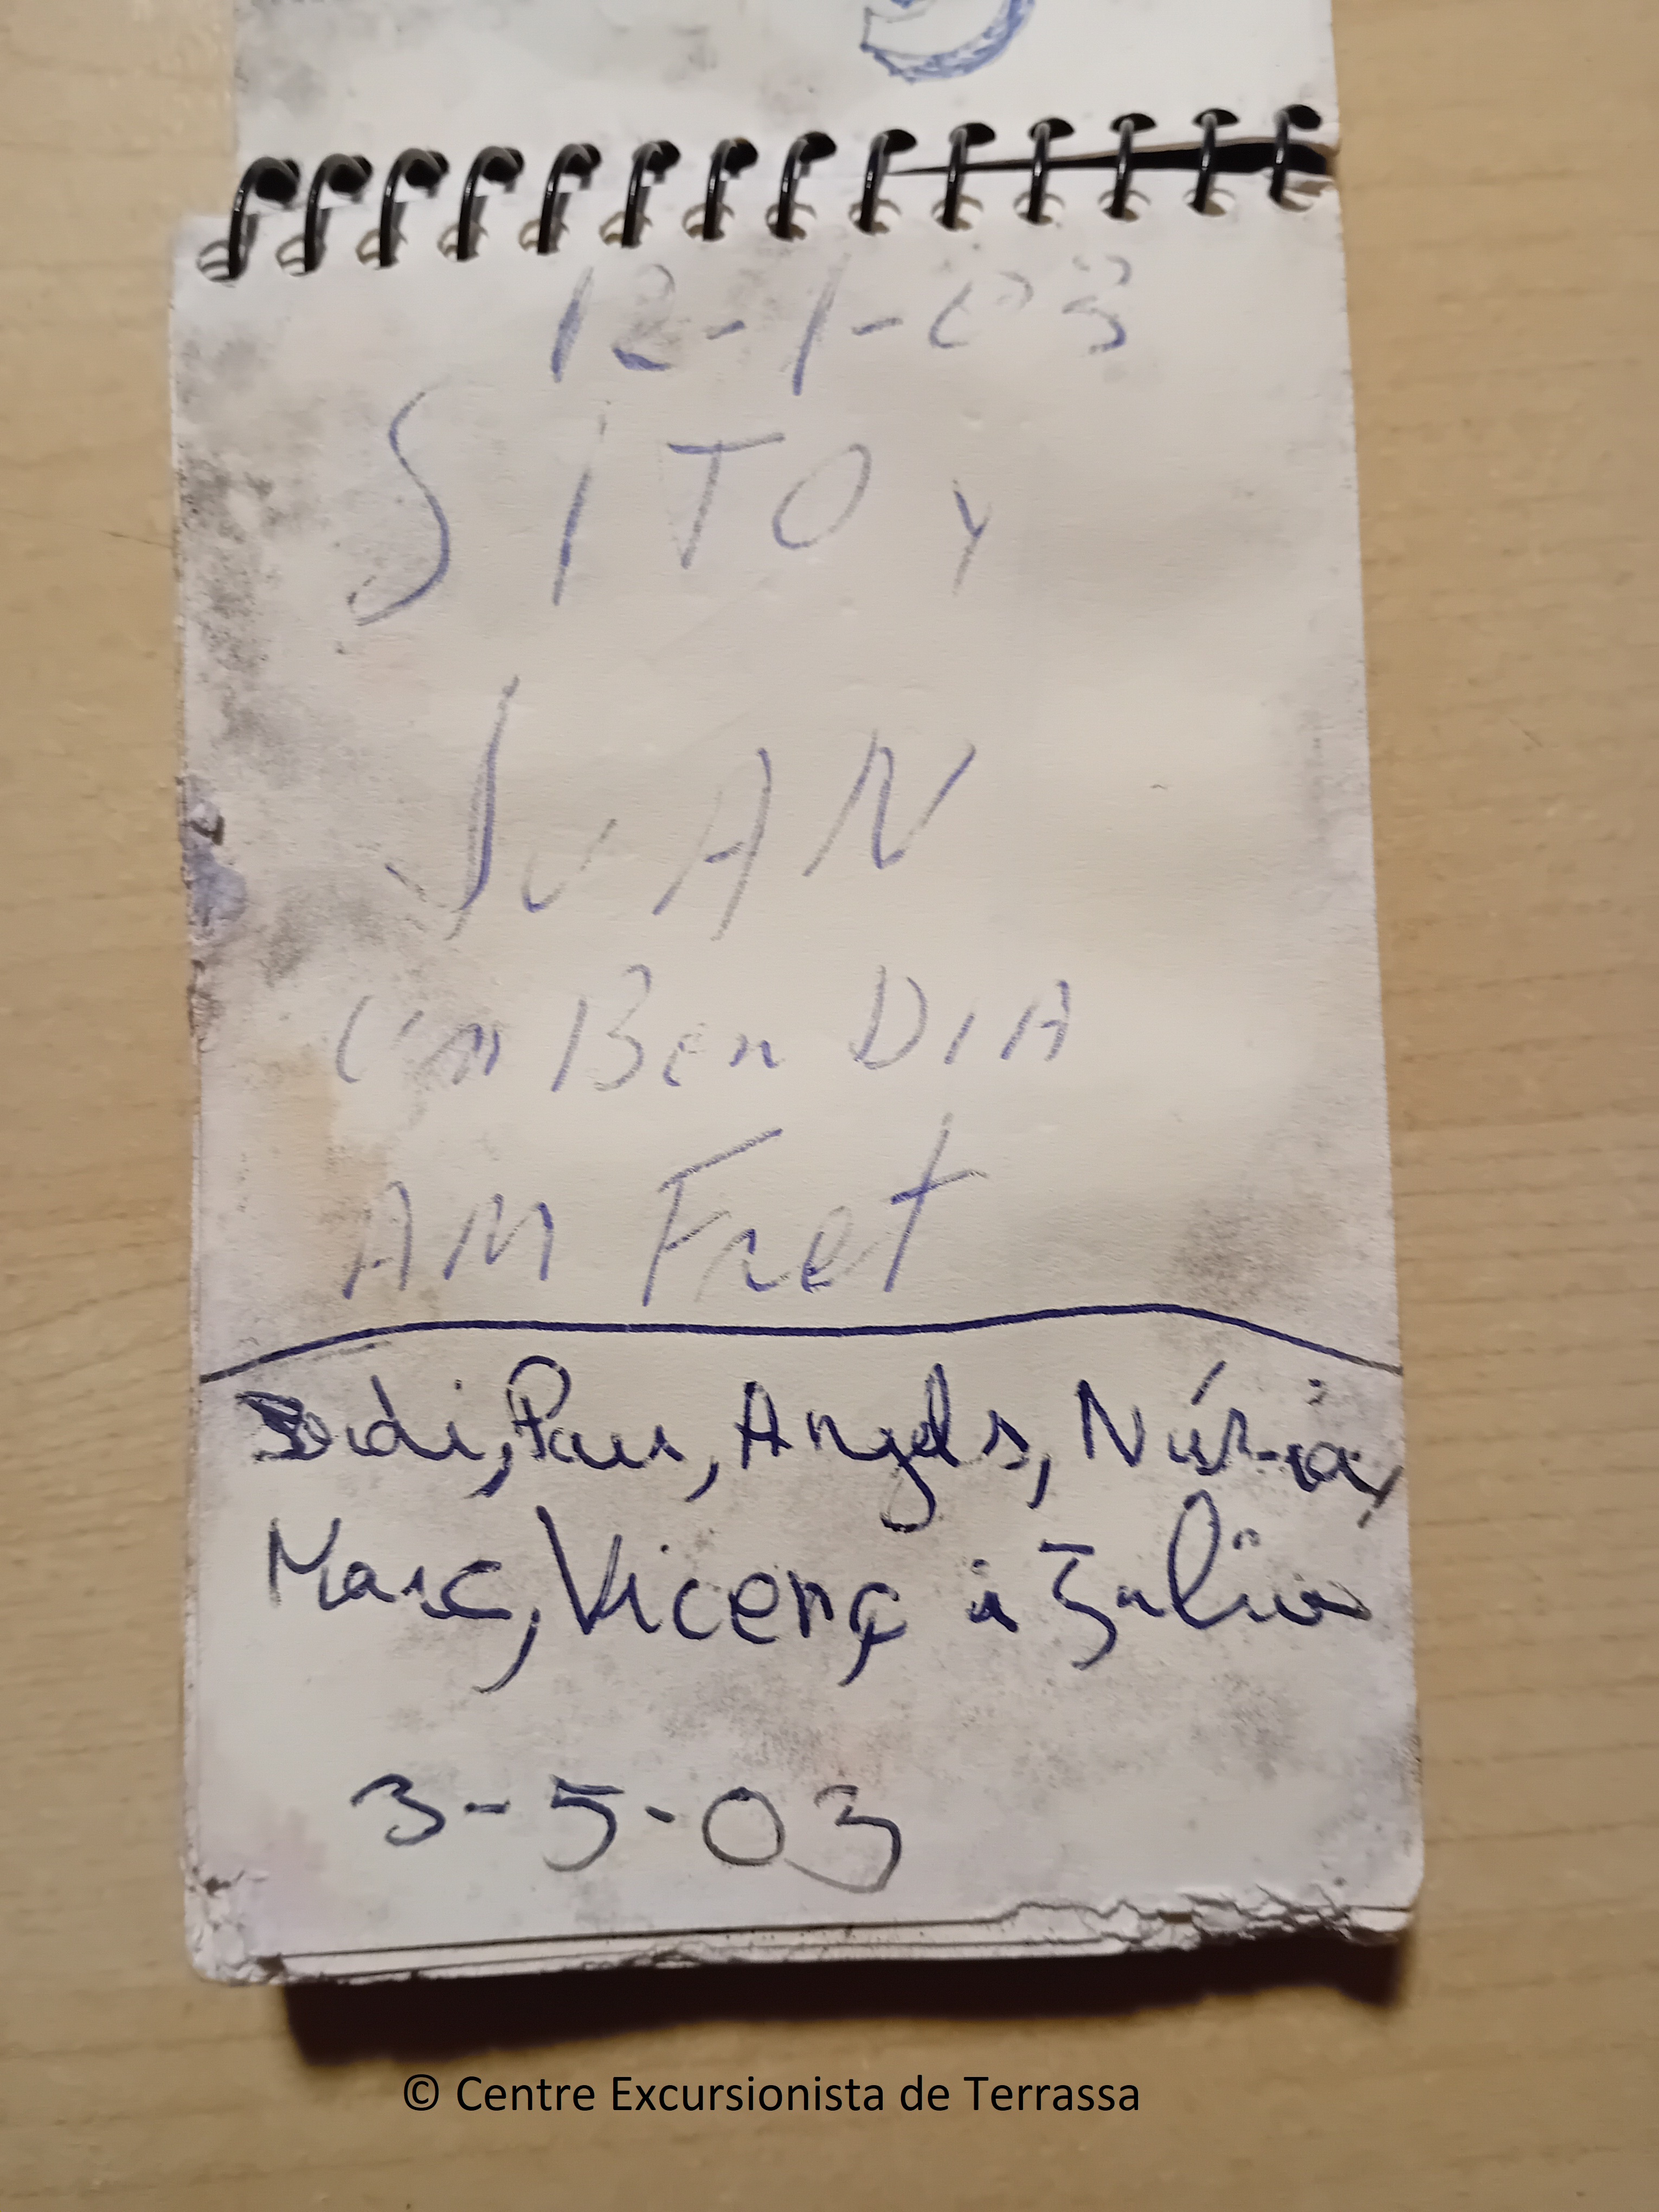 12-1-03
SiTO y
JUAN
Un Ben DIA
AM Fret
Jordi, Pau, Angels, Núria,
Marc, Vicenç i Júlia
3-5-03
© Centre Excursionista de Terrassa